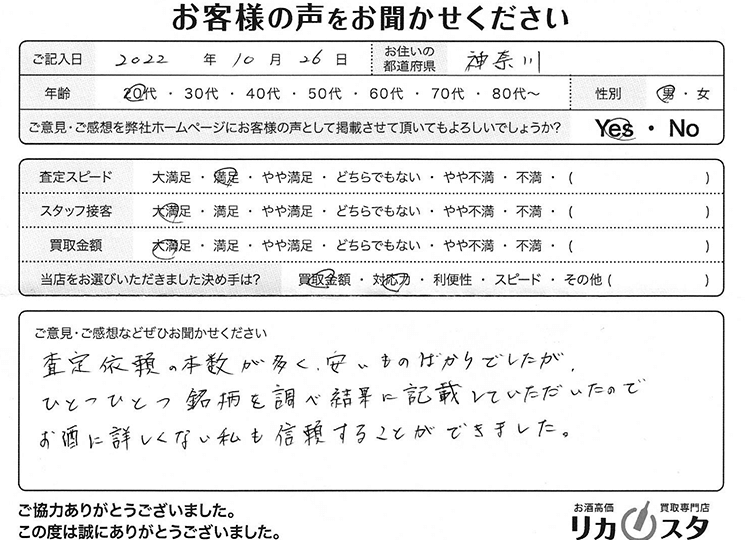 お客様の声をお聞かせください
ご記入日 2022 年 10 月 26 日 お住いの都道府県 神奈川
年齢 20代 ・ 30代 ・ 40代 ・ 50代 ・ 60代 ・ 70代 ・ 80代～ 性別 男 ・ 女
ご意見・ご感想を弊社ホームページにお客様の声として掲載させて頂いてもよろしいでしょうか? Yes ・ No
査定スピード 大満足 ・ 満足 ・ やや満足 ・ どちらでもない ・ やや不満 ・ 不満 ・ ( )
スタッフ接客 大満足 ・ 満足 ・ やや満足 ・ どちらでもない ・ やや不満 ・ 不満 ・ ( )
買取金額 大満足 ・ 満足 ・ やや満足 ・ どちらでもない ・ やや不満 ・ 不満 ・ ( )
当店をお選びいただきました決め手は? 買取金額 ・ 対応力 ・ 利便性 ・ スピード ・ その他 ( )
ご意見・ご感想などぜひお聞かせください
査定依頼の本数が多く、安いものばかりでしたが、
ひとつひとつ銘柄を調べ結果に記載していただいたので
お酒に詳しくない私も信頼することができました。
ご協力ありがとうございました。
この度は誠にありがとうございました。
お酒高価 買取専門店
リカスタ